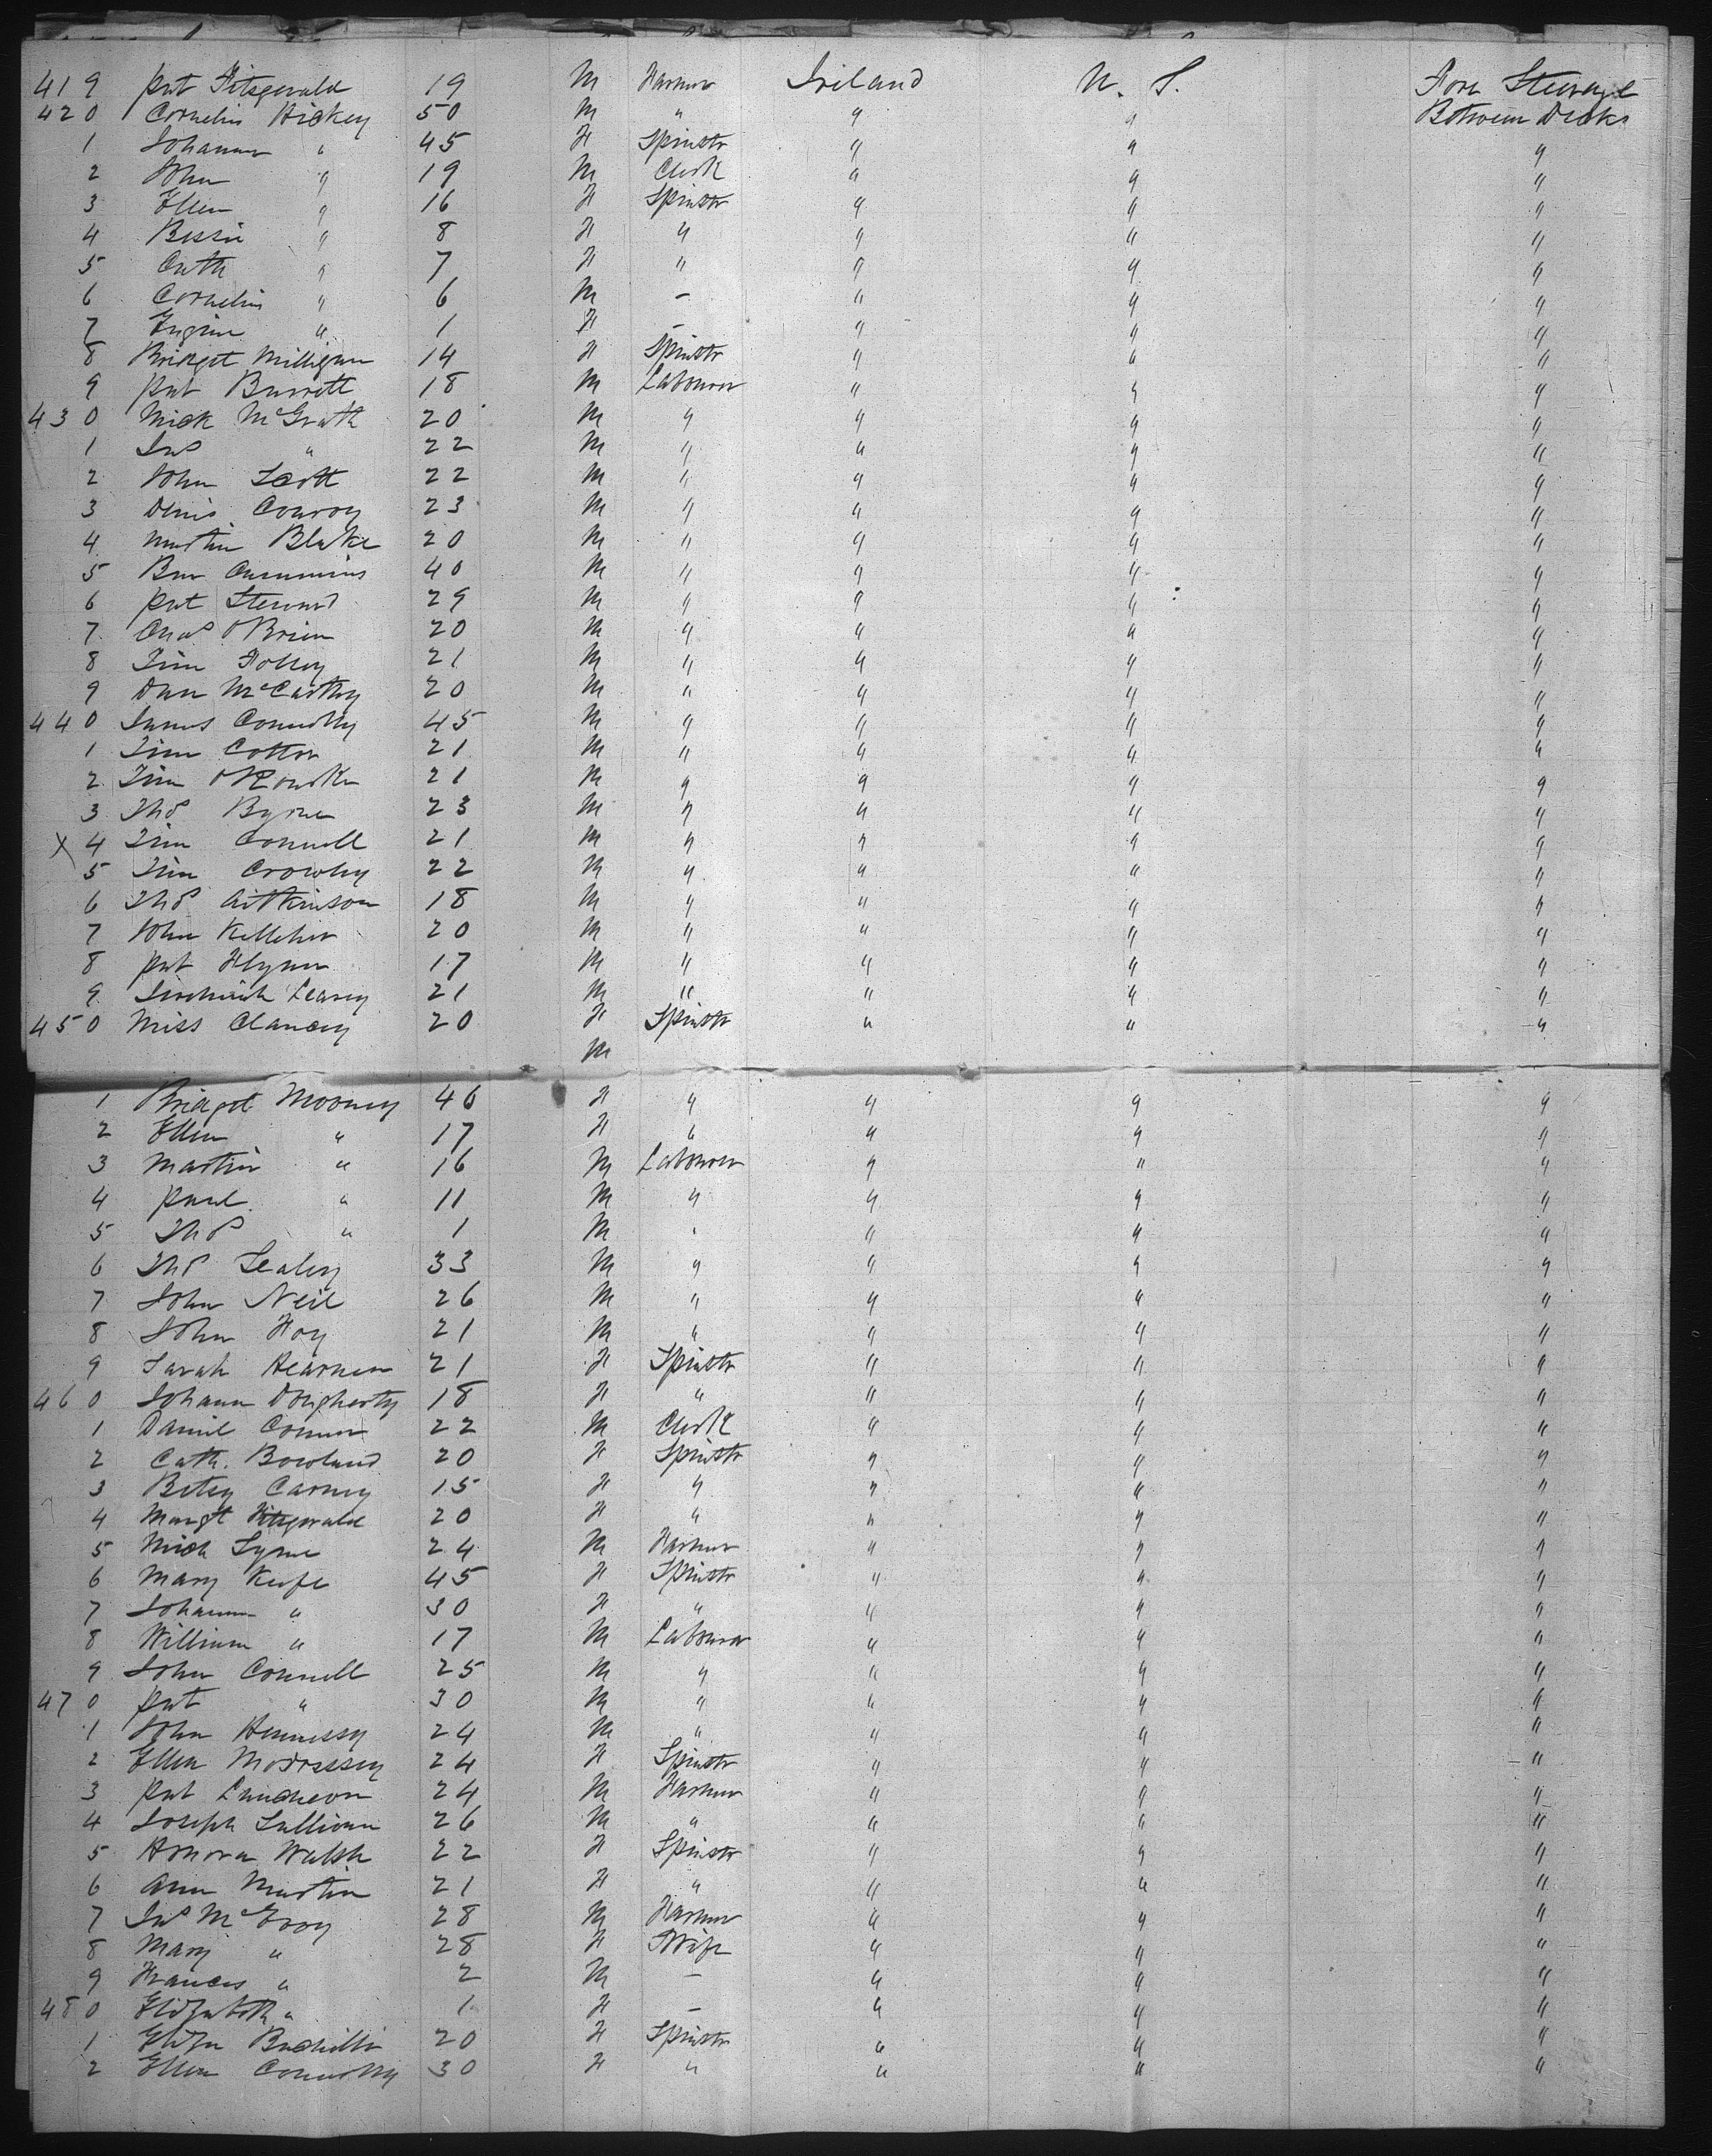 419 Pat Fitzgerald 19 M Farmer Ireland U. S. Fore Steerage
420 Cornelius Hickey 50 M " " " Between Decks
1 Johanna " 45 F Spinstr " " "
2 John " 19 M Clerk " " "
3 Ellen " 16 F Spinstr " " "
4 Bessie " 8 F " " " "
5 Cath " 7 F " " " "
6 Cornelius " 6 M - " " "
7 Eugine " 1 F - " " "
8 Bridget Milligan 14 F Spinstr " " "
9 Pat Barrett 18 M Labourer " " "
430 Mick McGrath 20 M " " " "
1 Jno " 22 M " " " "
2 John Scott 22 M " " " "
3 Denis Conroy 23 M " " " "
4 Martin Blake 20 M " " " "
5 Cummins 40 M " " " "
6 Pat Steward 29 M " " " "
7 Chas O'Brien 20 M " " " "
8 Tim Folley 21 M " " " "
9 Dan McCarthy 20 M " " " "
440 James Connolly 45 M " " " "
1 Tim Cotter 21 M " " " "
2 Tim O'Rourke 21 M " " " "
3 Thos Byrne 23 M " " " "
X 4 Tim Connell 21 M " " " "
5 Tim Crowley 22 M " " " "
6 Thos Aitkinson 18 M " " " "
7 John Kelleher 20 M " " " "
8 Pat Flynn 17 M " " " "
9 Jeremiah Learey 21 M " " " "
450 Miss Clancey 20 F Spinstr " " "
M
1 Bridget Mooney 46 F " " " "
2 Ellen " 17 F " " " "
3 Martin " 16 M Labourer " " "
4 Paul " 11 M " " " "
5 Thos " 1 M " " " "
6 Thos Sealey 33 M " " " "
7 John Neil 26 M " " " "
8 John Foy 21 M " " " "
9 Sarah Hearnen 21 F Spinstr " " "
460 Johann Dougherty 18 F " " " "
1 Daniel Connor 22 M Clerk " " "
2 Cath. Bowland 20 F Spinstr " " "
3 Betsy Carney 15 F " " " "
4 Margt Fitzgerald 20 F " " " "
5 Mick Lyne 24 M Farmer " " "
6 Mary Keefe 45 F Spinstr " " "
7 Johanna " 30 F " " " "
8 William " 17 M Labourer " " "
9 John Connell 25 M " " " "
470 Pat " 30 M " " " "
1 John Hennessy 24 M " " " "
2 Ellen Morrissey 24 F Spinstr " " "
3 Pat Luncheon 24 M Farmer " " "
4 Joseph Sullivan 26 M " " " "
5 Honora Walsh 22 F Spinstr " " "
6 Ann Martin 21 F " " " "
7 Jno McEvoy 28 M Farmer " " "
8 Mary " 28 F Wife " " "
9 Frances " 2 M - " " "
480 Elizabeth " 1 F - " " "
1 Eliza 20 F Spinstr " " "
2 Ellen Connolly 30 F " " " "